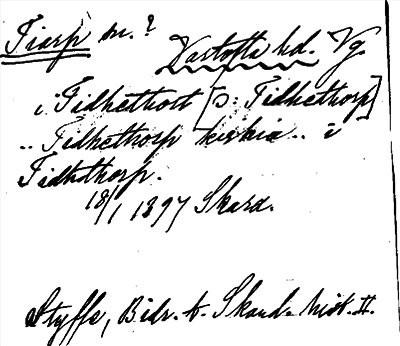 Tiarp sn.? Vartofta hd. Vg.
i Tidhethort [ɔ: Tidhethorp]
.. Tidhethorp kirkia .. i
Tidhthorp.
18/1 1397 Skara.
Styffe, Bidr. t. Skand. hist. II.